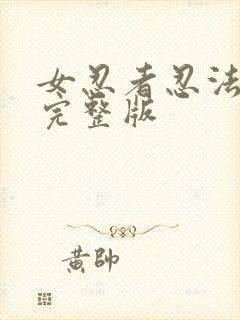 女忍者忍法
完整版
黄帥